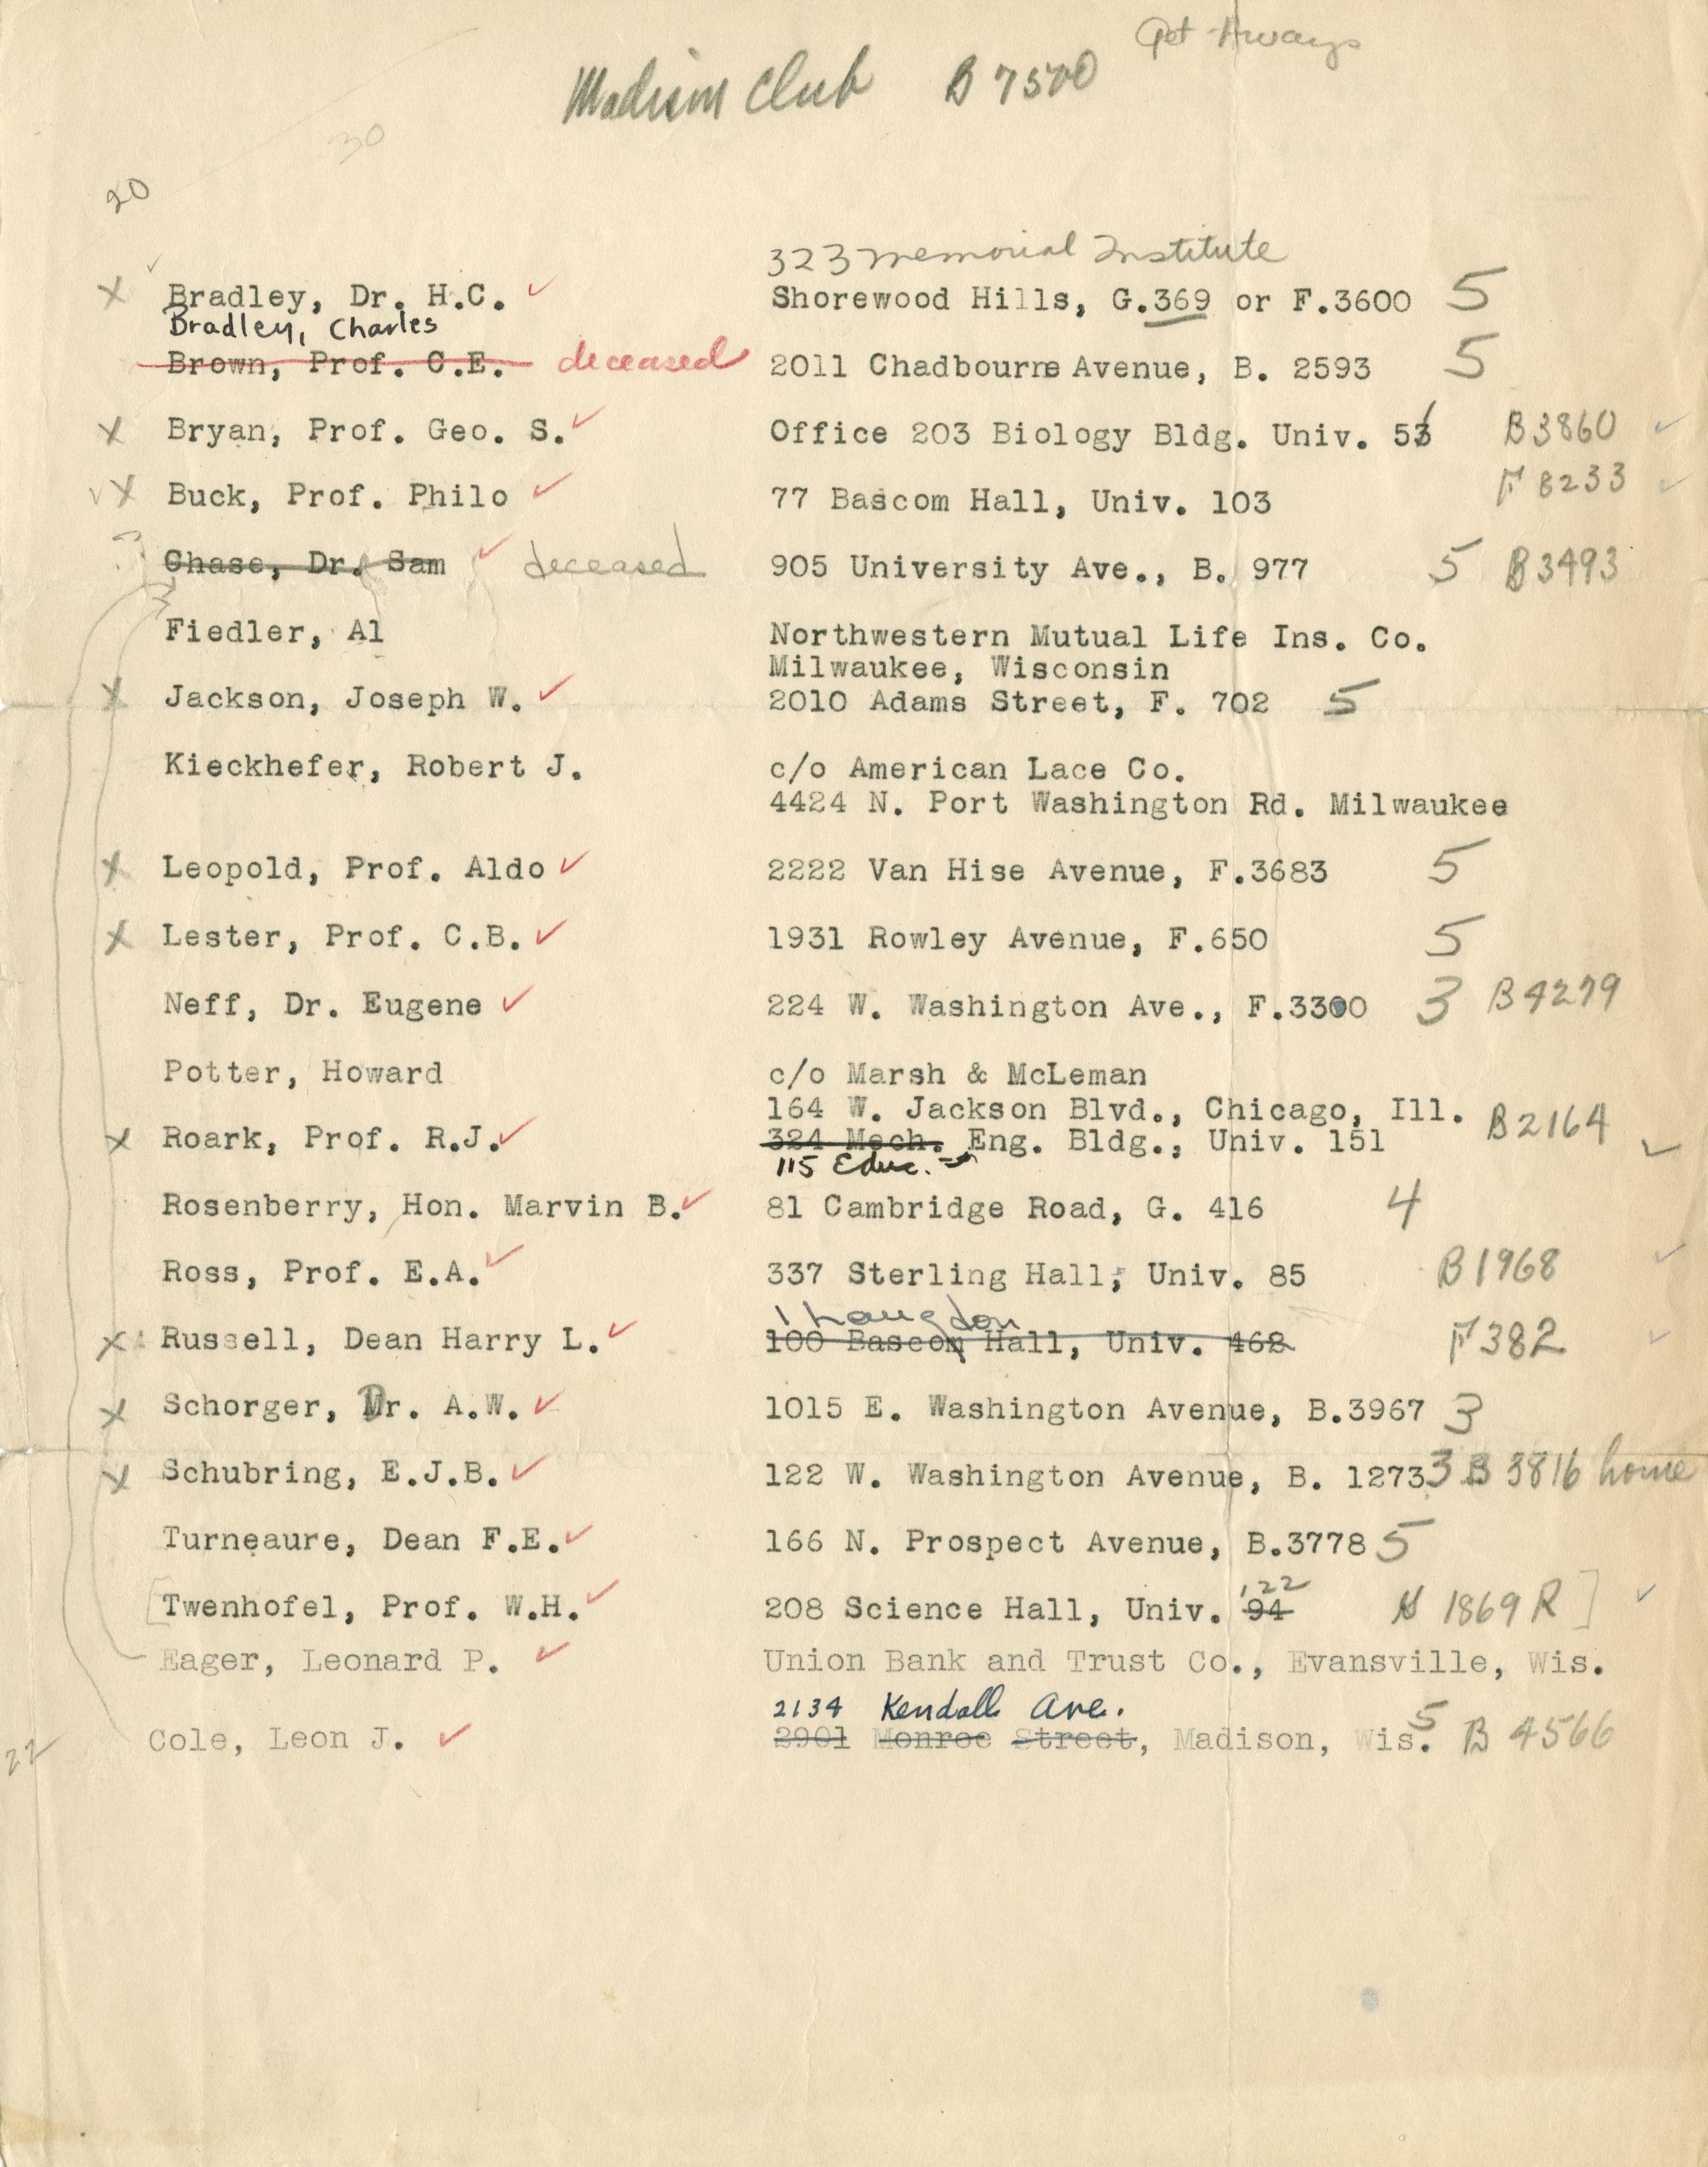 Get-Aways
Madison Club B 7500
30
20
323 Memorial Institute
X Bradley, Dr. H.C. ✓ Shorewood Hills, G.369 or F.3600 5
Bradley, Charles
Brown, Prof. C.E. deceased 2011 Chadbourne Avenue, B. 2593 5
X Bryan, Prof. Geo. S. ✓ Office 203 Biology Bldg. Univ. 53 B3860 ✓
✓ X Buck, Prof. Philo ✓ 77 Bascom Hall, Univ. 103 F 8233 ✓
Chase, Dr. Sam ✓ deceased 905 University Ave., B. 977 5 B3493
Fiedler, Al Northwestern Mutual Life Ins. Co.
Milwaukee, Wisconsin
X Jackson, Joseph W. ✓ 2010 Adams Street, F. 702 5
Kieckhefer, Robert J. c/o American Lace Co.
4424 N. Port Washington Rd. Milwaukee
X Leopold, Prof. Aldo ✓ 2222 Van Hise Avenue, F.3683 5
X Lester, Prof. C.B. ✓ 1931 Rowley Avenue, F.650 5
Neff, Dr. Eugene ✓ 224 W. Washington Ave., F.3300 3 B4279
Potter, Howard c/o Marsh & McLeman
164 W. Jackson Blvd., Chicago, Ill.
X Roark, Prof. R.J. ✓ 324 Mech. Eng. Bldg., Univ. 151 B2164 ✓
115 Educ.
Rosenberry, Hon. Marvin B. ✓ 81 Cambridge Road, G. 416 4
Ross, Prof. E.A. ✓ 337 Sterling Hall, Univ. 85 B1968 ✓
1 Langdon
X Russell, Dean Harry L. ✓ 100 Bascom Hall, Univ. 462 F382 ✓
X Schorger, Dr. A.W. ✓ 1015 E. Washington Avenue, B.3967 3
X Schubring, E.J.B. ✓ 122 W. Washington Avenue, B. 1273 3 B 3816 home
Turneaure, Dean F.E. ✓ 166 N. Prospect Avenue, B.3778 5
122
[Twenhofel, Prof. W.H. ✓ 208 Science Hall, Univ. 94 1869 R] ✓
Eager, Leonard P. ✓ Union Bank and Trust Co., Evansville, Wis.
2134 Kendall Ave.
22 Cole, Leon J. ✓ 2901 Monroe Street, Madison, Wis. 5 B 4566